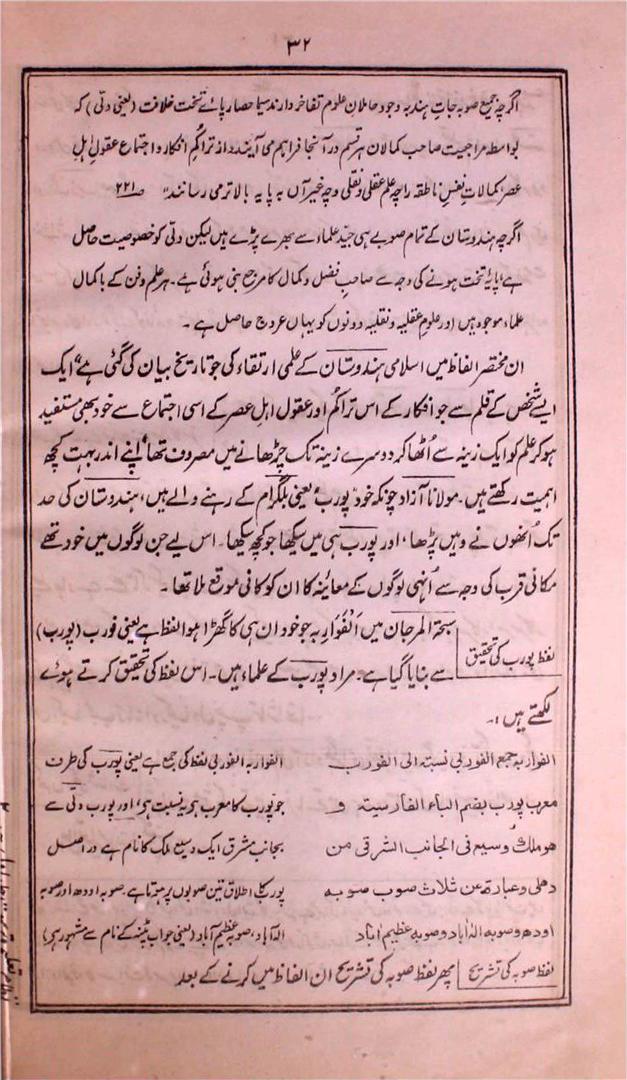 ۳۲
اگرچہ جمیع صوبہ جات ہند بہ وجود حاملان علوم تفاخر دارند سیما حصار پائے تخت خلافت (یعنی دلی) کہ
بواسطہ مراجعیت صاحب کمالان ہر قسم در آنجا فراہم می آیند و از تراکم افکار و اجتماع عقول اہل
عصر کمالات نفس ناطقہ را چہ علم عقلی و نقلی و چہ غیر آں بہ پایہ بالا تر می رسانند" ص۲۲۱
اگرچہ ہندوستان کے تمام صوبے ہی جید علماء سے بھرے پڑے ہیں لیکن دلی کو خصوصیت حاصل
ہے پایۂ تخت ہونے کی وجہ سے صاحب فضل و کمال کا مرجع بنی ہوئی ہے۔ ہر علم و فن کے باکمال
علماء موجود ہیں اور علوم عقلیہ و نقلیہ دونوں کو یہاں عروج حاصل ہے۔
ان مختصر الفاظ میں اسلامی ہندوستان کے علمی ارتقاء کی جو تاریخ بیان کی گئی ہے، ایک
ایسے شخص کے قلم سے جو افکار کے اس تراکم اور عقول اہل عصر کے اسی اجتماع سے خود بھی مستفید
ہو کر علم کو ایک زینہ سے اُٹھا کر دوسرے زینہ تک چڑھانے میں مصروف تھا، اپنے اندر بہت کچھ
اہمیت رکھتے ہیں۔ مولانا آزاد چونکہ خود "پورب" یعنی بلگرام کے رہنے والے ہیں، ہندوستان کی حد
تک اُنھوں نے وہیں پڑھا، اور پورب ہی میں سیکھا جو کچھ سیکھا۔ اس لیے جن لوگوں میں خود تھے
مکانی قرب کی وجہ سے اُنہی لوگوں کے معائنہ کا ان کو کافی موقع ملا تھا۔
لفظ پورب کی تحقیق
سبحۃ المرجان میں اَلْفَوَارِبہ جو خود ان ہی کا گھڑا ہوا لفظ ہے یعنی فورب (پورب)
سے بنایا گیا ہے۔ مراد پورب کے علماء ہیں۔ اس لفظ کی تحقیق کرتے ہوئے
لکھتے ہیں :۔
الفواربہ جمع الفوربی نسبتہ الی الفورب
معرب پورب بضم الباء الفارسیتہ و
ھو ملک وسیع فی الجانب الشرقی من
دھلی وعبارۃ عن ثلاث صوب صوبہ
اودھ وصوبہ الہٰ اباد وصوبہ عظیم اٰباد
الفواربہ الفوربی لفظ کی جمع ہے یعنی پورب کی طرف
جو پورب کا معرب ہی یہ نسبت ہی، اور پورب دلی سے
بجانب مشرق ایک وسیع ملک کا نام ہے دراصل
پورب کا اطلاق تین صوبوں پر ہوتا ہے۔ صوبہ اودھ اور صوبہ
الہ آباد، صوبہ عظیم آباد (یعنی جو اب پٹنہ کے نام سے مشہور ہی)
لفظ صوبہ کی تشریح
پھر لفظ صوبہ کی تشریح ان الفاظ میں کرنے کے بعد